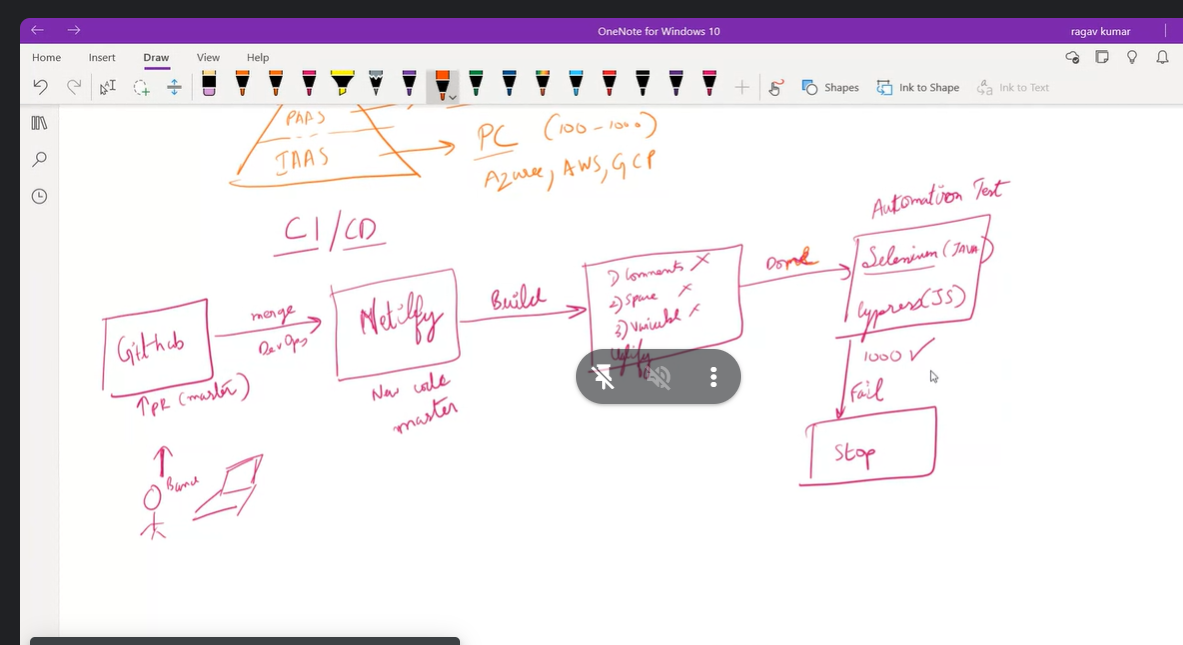 OneNote for Windows 10
ragav kumar
Home Insert Draw View Help
Shapes Ink to Shape Ink to Text
PAAS
IAAS
PC (100-1000)
Azure, AWS, GCP
CI/CD
GitHub
↑PR (master)
merge
DevOps
Netilfy
New code
master
Build
1) Comments X
2) Space X
3) Variable X
Uglify
Done
Automation Test
Selenium (JAVA)
Cypress (JS)
1000 ✓
Fail
Stop